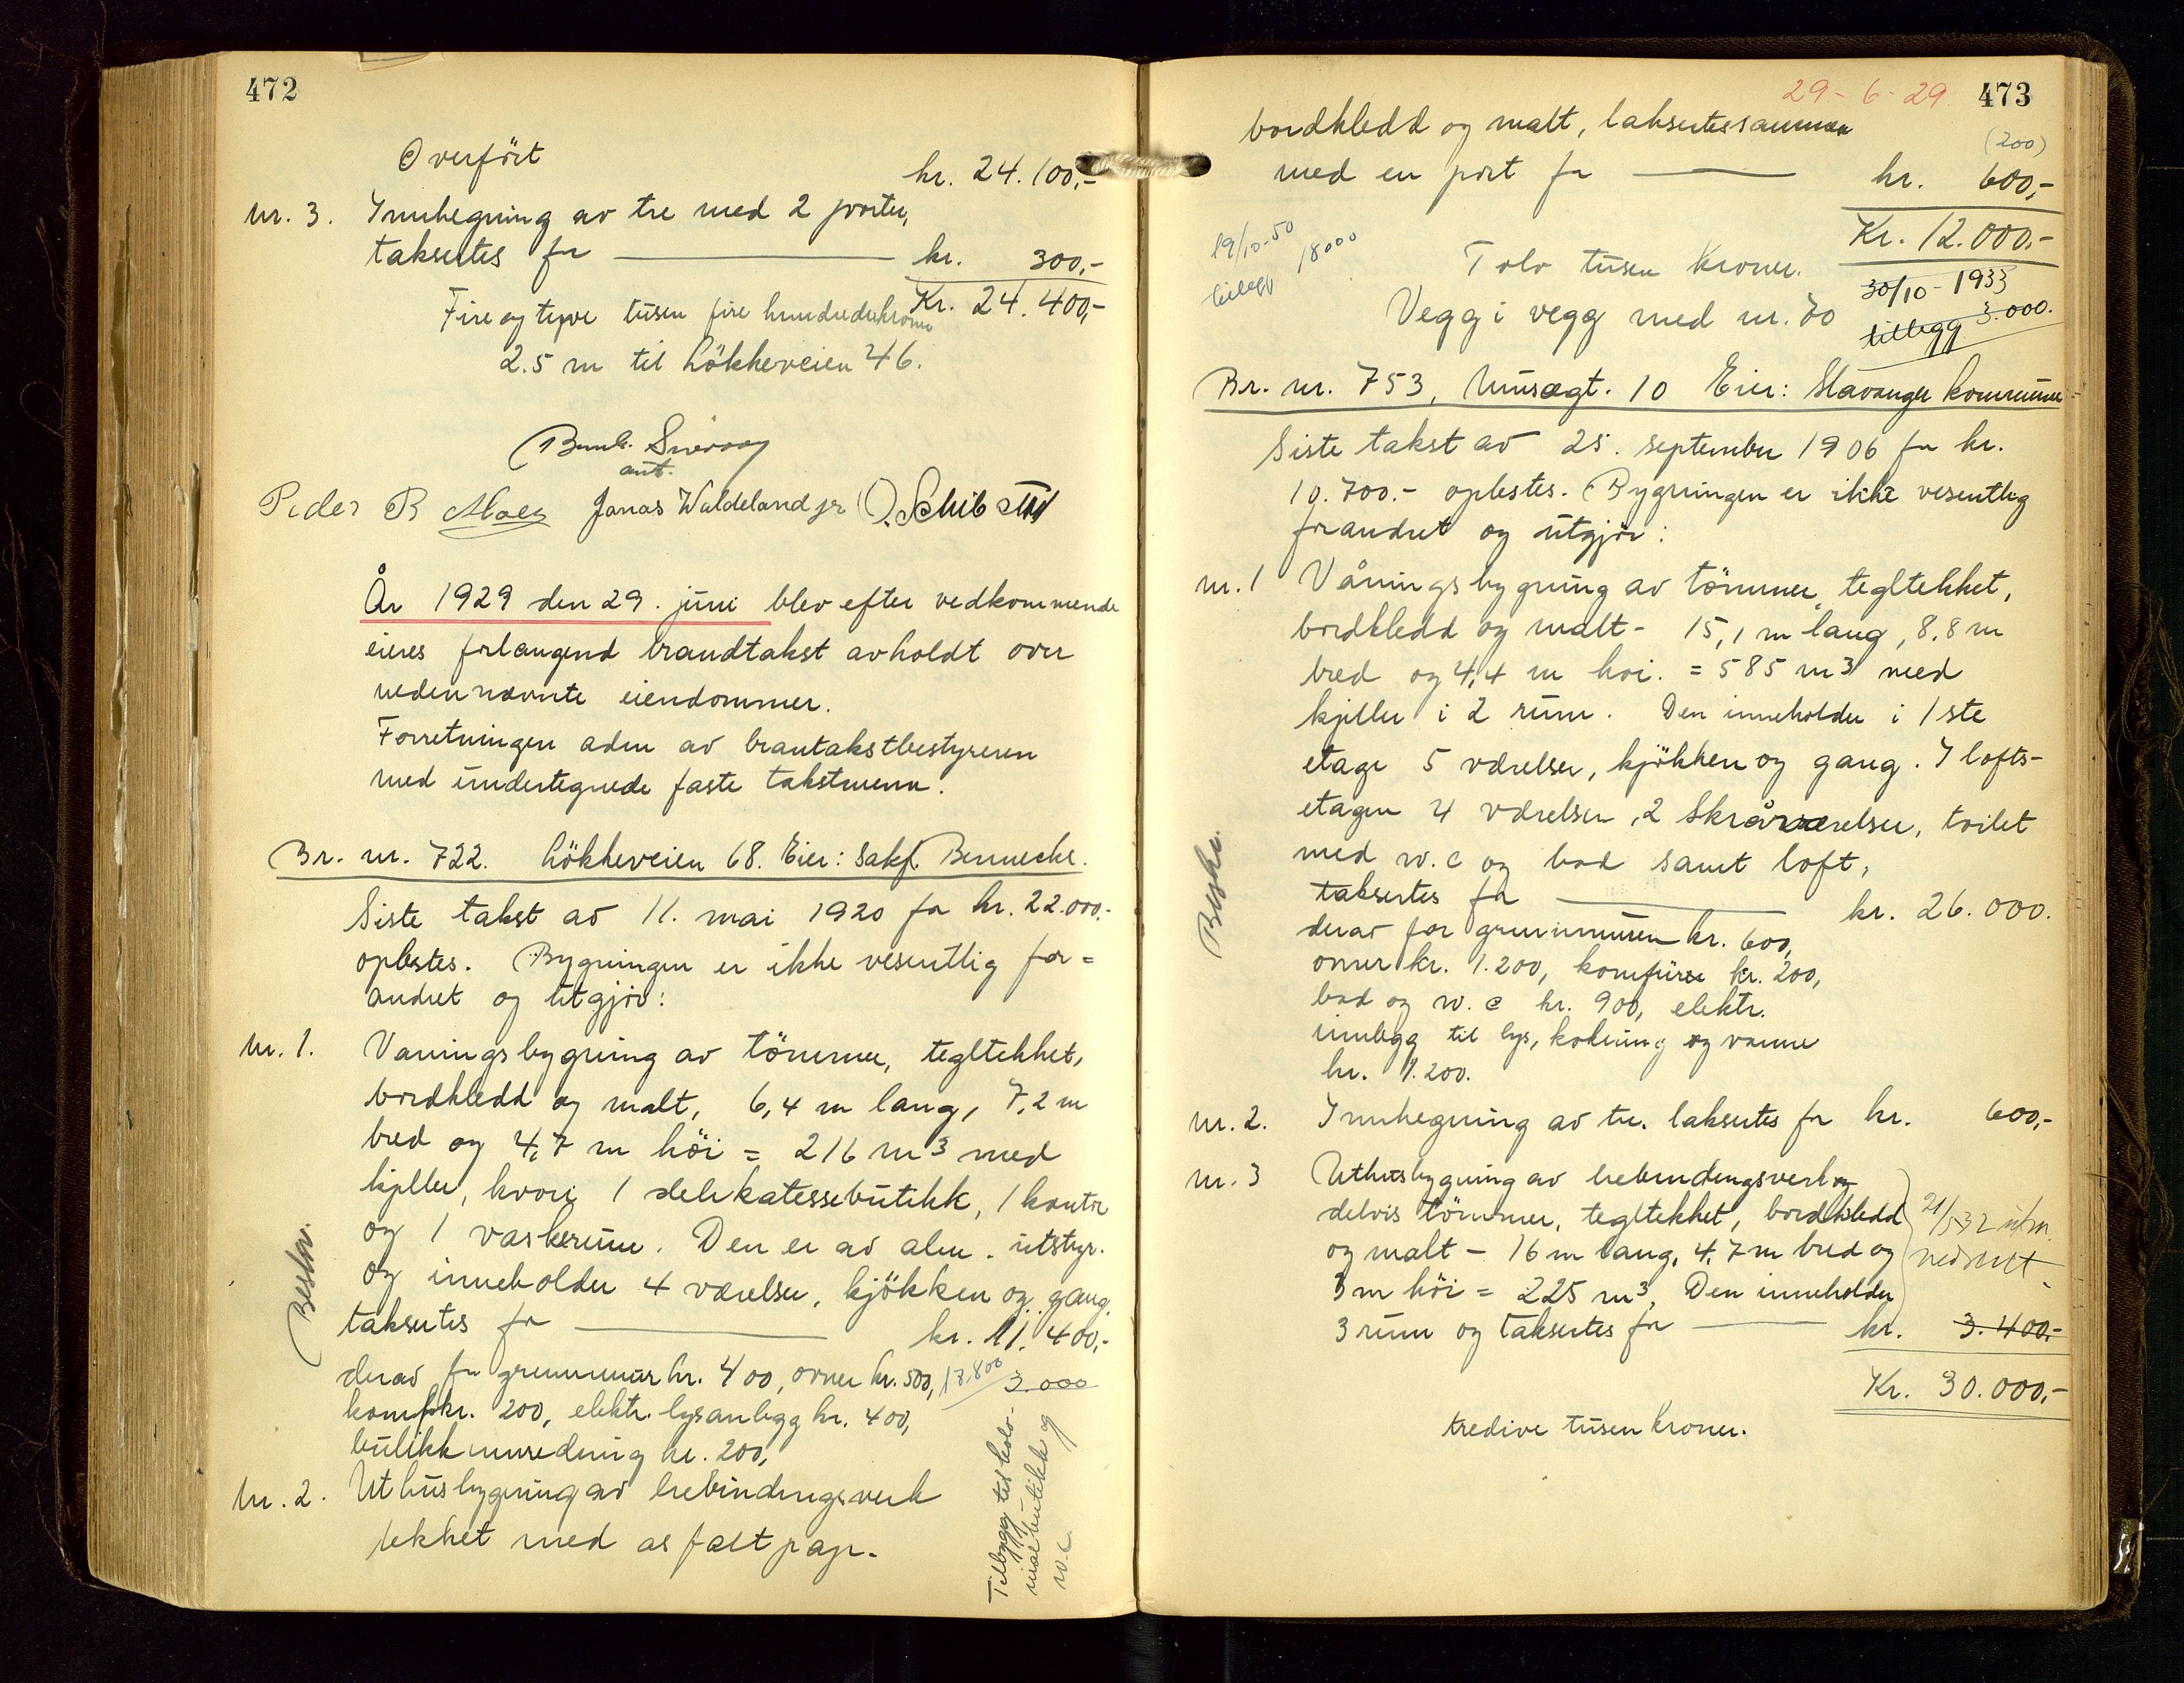 472
Overfört
kr. 24.100,-
nr. 3. Innhegning av tre med 2 porter,
taksertes for kr. 300,-
Kr. 24.400,-
Fire og tyve tusen fire hundrede kroner
2.5 m til Lökkeveien 46.
ant.
Peder R Jonas Waldeland jr O. Schibsted
År 1929 den 29. juni blev efter vedkommende
eieres forlangend brandtakst avholdt over
nedennævnte eiendommer.
Forretningen aden av brantakstbestyreren
med undertegnede faste takstmenn.
Br. nr. 722. Lökkeveien 68. Eier: Sakf. Bennecke.
Siste takst av 11. mai 1920 for kr. 22.000.-
oplestes. Bygningen er ikke vesentlig for=
andret og utgjör:
nr. 1. Vaningsbygning av tömmer, tegltekket,
bordkledd og malt, 6,4 m lang, 7,2 m
bred og 4,7 m höi = 216 m3 med
kjeller, hvori 1 delikatessebutikk, 1 kontor
og 1 vaskerum. Den er av alm. utstyr.
og inneholder 4 værelser, kjökken og gang.
taksertes for kr. 11.400,-
derav for grunnmur kr. 400, ovner kr. 500, 13.800 3.000
komf. kr. 200, elektr. lysanlegg kr. 400,
butikkinnredning kr. 200,
Beskr.
nr. 2. Uthusbygning av bebindingsverk
tekket med asfaltpap.
Tilbygg til kolo-
nial butikk og
w.c.
29-6-29 473
bordkledd og malt, taksertes sammen
(200)
med en port for kr. 600,-
Kr. 12.000,-
19/10-50
tillegg 18000
Tolv tusen kroner.
30/10-1933
tillegg 3.000.
Vegg i vegg med nr. 70
Br. nr. 753, Munsægt. 10 Eier: Stavanger kommune
Siste takst av 25. september 1906 for kr.
10.700.- oplestes. Bygningen er ikke vesentlig
forandret og utgjör:
nr. 1 Våningsbygning av tömmer, tegltekket,
bordkledd og malt - 15,1 m lang, 8.8 m
bred og 4,4 m hoi. = 585 m3 med
kjeller i 2 rum. Den inneholder i 1ste
etage 5 værelser, kjökken og gang. I lofts-
etagen 4 værelser, 2 skråværelser, toilet
med w.c og bad samt loft,
taksertes for kr. 26.000.
derav for grunnmuren kr. 600,
ovner kr. 1.200, komfürer kr. 200,
bad og w.c kr. 900, elektr.
innlegg til lys, kokning og varme
kr. 1.200.
Beskr.
nr. 2. Innhegning av tre. taksertes for kr. 600,-
nr. 3 Uthusbygning av bebindingsverk og
delvis tömmer, tegltekket, bordkledd
og malt - 16 m lang, 4,7 m bred og
3 m höi = 225 m3. Den inneholder
3 rum og taksertes for kr. 3.400,-
21/5-32
nedrevet
Kr. 30.000,-
tredive tusen kroner.